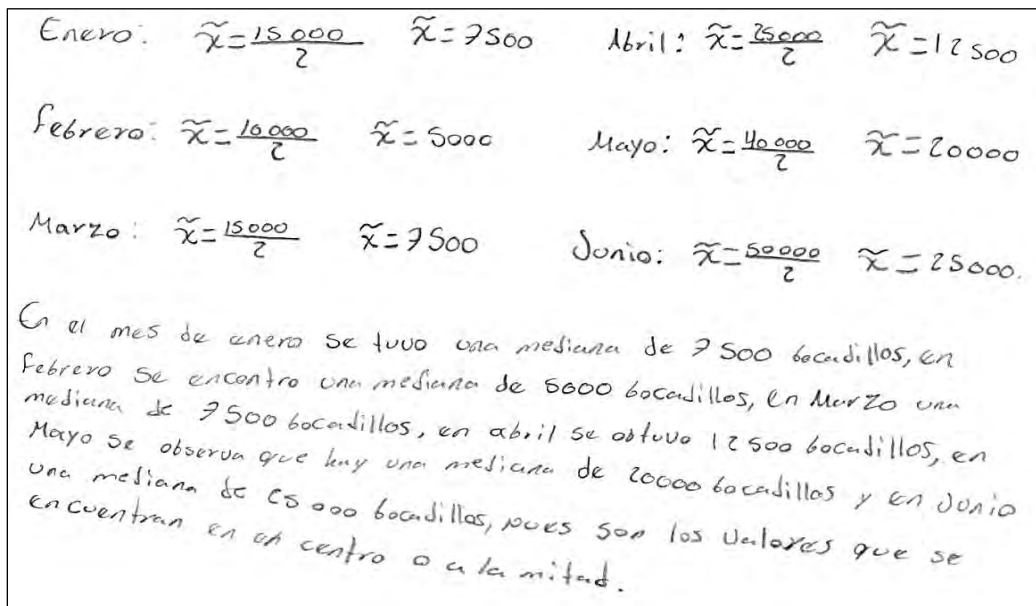 Enero: x̃=15 000/2 x̃=7500 Abril: x̃=25000/2 x̃=12 500
Febrero: x̃=10 000/2 x̃=5000 Mayo: x̃=40 000/2 x̃=20000
Marzo: x̃=15000/2 x̃=7500 Junio: x̃=50000/2 x̃=25000.
En el mes de enero se tuvo una mediana de 7 500 bocadillos, en
Febrero se encontro una mediana de 5000 bocadillos, en Marzo una
mediana de 7500 bocadillos, en abril se obtuvo 12 500 bocadillos, en
Mayo se observa que hay una mediana de 20000 bocadillos y en Junio
una mediana de 25 000 bocadillos, pues son los valores que se
encuentran en un centro o a la mitad.